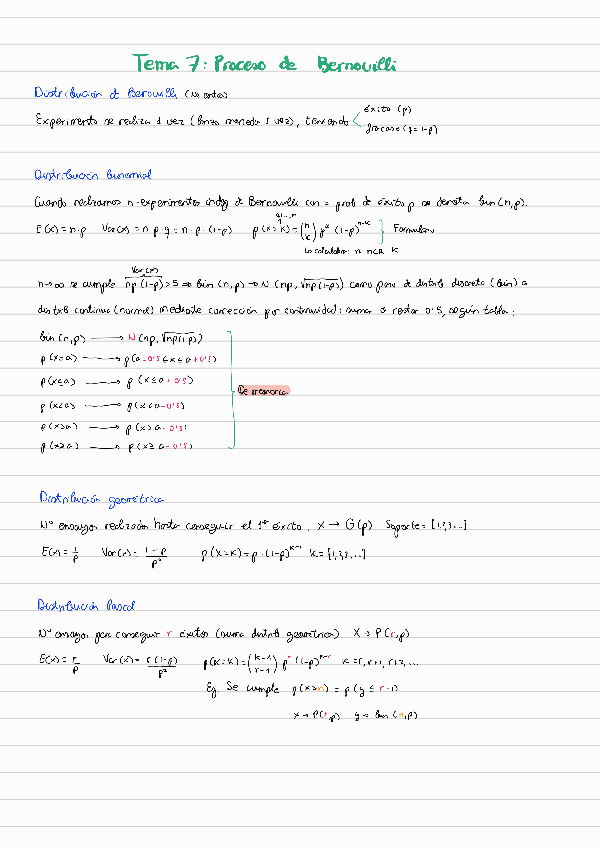 Tema 7: Proceso de Bernouilli
Distribución d Berouilli (No entra)
Experimento se realiza 1 vez (lanzo moneda 1 vez), teniendo éxito (p)
fracaso (q = 1-p)
Distribución binomial
Cuando realizamos n-experimentos indep d Bernouilli con = prob de éxito p se denota bin (n,p).
0,1,...,n
E(x) = n·p Var(x) = n·p·q = n·p·(1-p) p(x=k) = (n k) p^k (1-p)^{n-k} Formulario
La calculadora: n nCr k
Var(x)
n→∞ se cumple np(1-p)>5 ⇒ bin (n,p) → N (np, √np(1-p)) como paso de distrib discreta (bin) a
distrib continua (normal) mediante corrección por continuidad: sumar o restar 0'5, según tabla:
bin (n,p) → N (np, √np(1-p))
p (x=a) → p(a-0'5 ≤ x ≤ a+0'5)
p(x≤a) → p (x ≤ a+0'5)
De memoria
p (x<a) → p (x < a-0'5)
p (x>a) → p (x > a+0'5)
p (x≥a) → p (x ≥ a-0'5)
Distribución geométrica
Nº ensayos realización hasta conseguir el 1er éxito. X → G(p) Soporte = [1,2,3...]
E(x) = 1/p Var(x) = 1-p/p² p (X=K) = p·(1-p)^{k-1} K = [1,2,3,...]
Distribución Pascal
Nº ensayos para conseguir r éxitos (suma distrib geométrica) X → P(r,p)
E(x) = r/p Var(x) = r(1-p)/p² p(X=K) = (k-1 r-1) p^r (1-p)^{k-r} K = r, r+1, r+2, ...
Eg. Se cumple p(x>n) = p(y ≤ r-1)
x → P(r,p) y = bin (n,p)